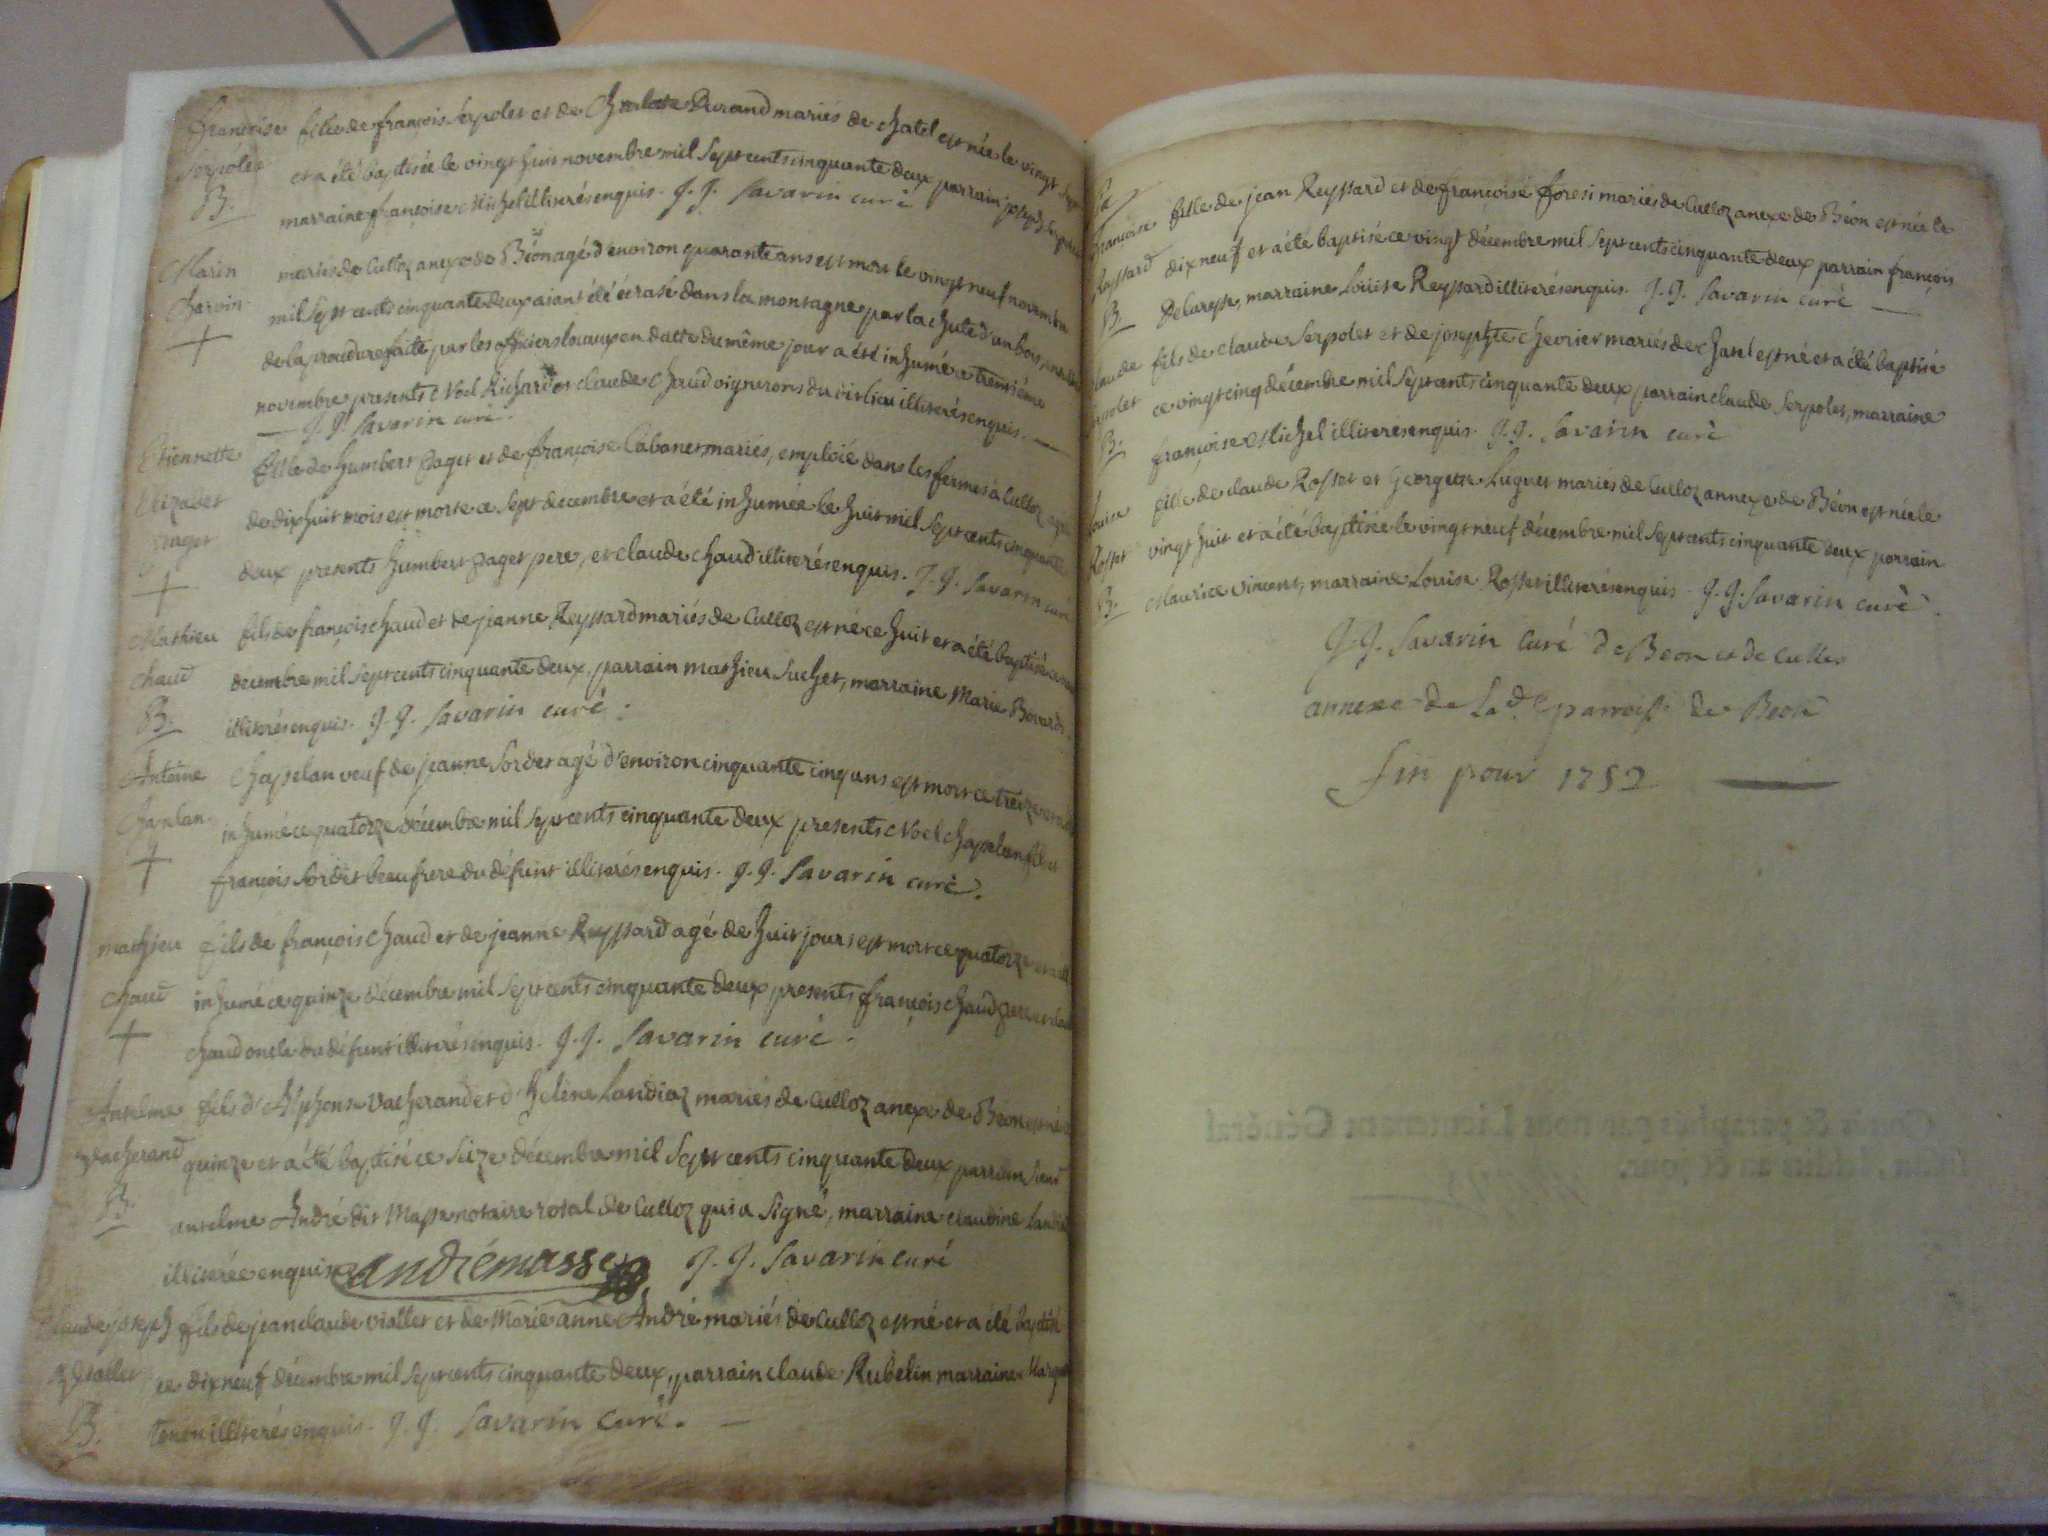 françoise fille de françois Serpolet et de Charlotte Durand mariés de chatel est née le vingt sept
Serpolet et a été baptisée le vingt huit novembre mil sept cents cinquante deux parrain joseph Serpolet
B. marraine françoise Michel illiterés enquis. J. J. Savarin curé
Marin mariés de Culloz anexe de Béon agé d'environ quarante ans est mort le vingt neuf novembre
Charvin mil sept cents cinquante deux aiant été écrasé dans la montagne par la chute d'un bois,
+ de la procedure faite par les officiers locaux en datte du même jour a été inhumé ce trentième
novembre presents Noel Richard et claude Chaud vignerons du dit lieu illiterés enquis. —
— J. J. Savarin curé.
Etiennette fille de humbert Paget et de françoise Cabanet mariés, emploié dans les fermes à Culloz agée
Elizabet de dix huit mois est morte ce sept decembre et a été inhumée le huit mil sept cents cinquante
Paget deux presents humbert Paget pere, et claude chaud illiterés enquis. J. J. Savarin curé
+
Mathieu fils de françois chaud et de jeanne Reyssard mariés de Culloz est né ce huit et a été baptisé ce neuf
chaud decembre mil sept cents cinquante deux, parrain mathieu Suchet, marraine Marie Bovard
B. illiterés enquis. J. J. Savarin curé.
Antoine Chapelan veuf de jeanne Sordet agé d'environ cinquante cinq ans est mort ce treize et a été
Chaplan inhumé ce quatorze décembre mil sept cents cinquante deux presents Noel Chapelan fils et
+ françois Sordet beaufrere du défunt illiterés enquis. J. J. Savarin curé.
mathieu fils de françois Chaud et de jeanne Reyssard agé de huit jours est mort ce quatorze et a été
chaud inhumé ce quinze décembre mil sept cents cinquante deux presents françois chaud pere et
+ chaud oncle du défunt illiterés enquis. J. J. Savarin curé.
Anselme fils d'Alphonse Vacherand et d'helene Landioz mariés de Culloz anexe de Béon est né
Vacherand quinze et a été baptisé ce seize décembre mil sept cents cinquante deux parrain Sieur
B. anselme André dit Masse notaire roïal de Culloz qui a signé, marraine claudine
illiterée enquise andrémasse J. J. Savarin curé
Claude joseph fils de jean claude viallet et de Marie anne André mariés de Culloz est né et a été baptisé
Viallet ce dix neuf décembre mil sept cents cinquante deux, parrain claude Rubelin marraine
B. illiterés enquis. J. J. Savarin curé. —
françoise fille de jean Reyssard et de françoise foresi mariés de Culloz anexe de Béon est née le
Reyssard dix neuf et a été baptisée ce vingt décembre mil sept cents cinquante deux parrain françois
B. Delareyse, marraine Louise Reyssard illiterés enquis. J. J. Savarin curé —
Claude fils de claude Serpolet et de josephte chevrier mariés de Chatel est né et a été baptisé
Serpolet ce vingt cinq décembre mil sept cents cinquante deux parrain claude Serpolet, marraine
B. françoise Michel illiterés enquis. J. J. Savarin curé
Louise fille de claude Rosset et Georgette Luguet mariés de Culloz annexe de Béon est née le
Rosset vingt huit et a été baptisée le vingt neuf décembre mil sept cents cinquante deux parrain
B. Maurice Vincent, marraine Louise Rosset illiterés enquis. J. J. Savarin curé.
J. J. Savarin Curé de Beon et de Culloz
annexe de La de. parroisse de Beon
fin pour 1752 —